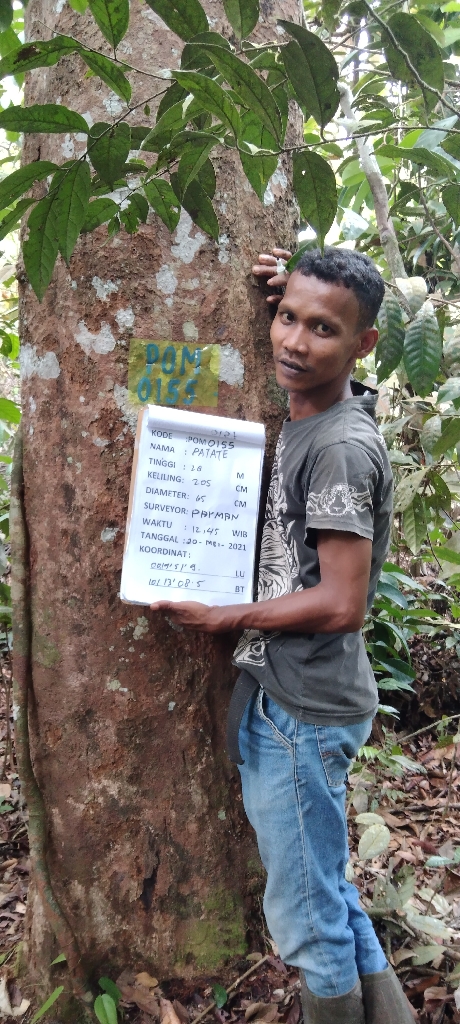 POM
0155
KODE : POM0155
NAMA : PATATE
TINGGI : 28 M
KELILING: 205 CM
DIAMETER: 65 CM
SURVEYOR: PAYMAN
WAKTU : 12.45 WIB
TANGGAL: 20-Mei-2021
KOORDINAT:
LU
101 13' 08.5 BT